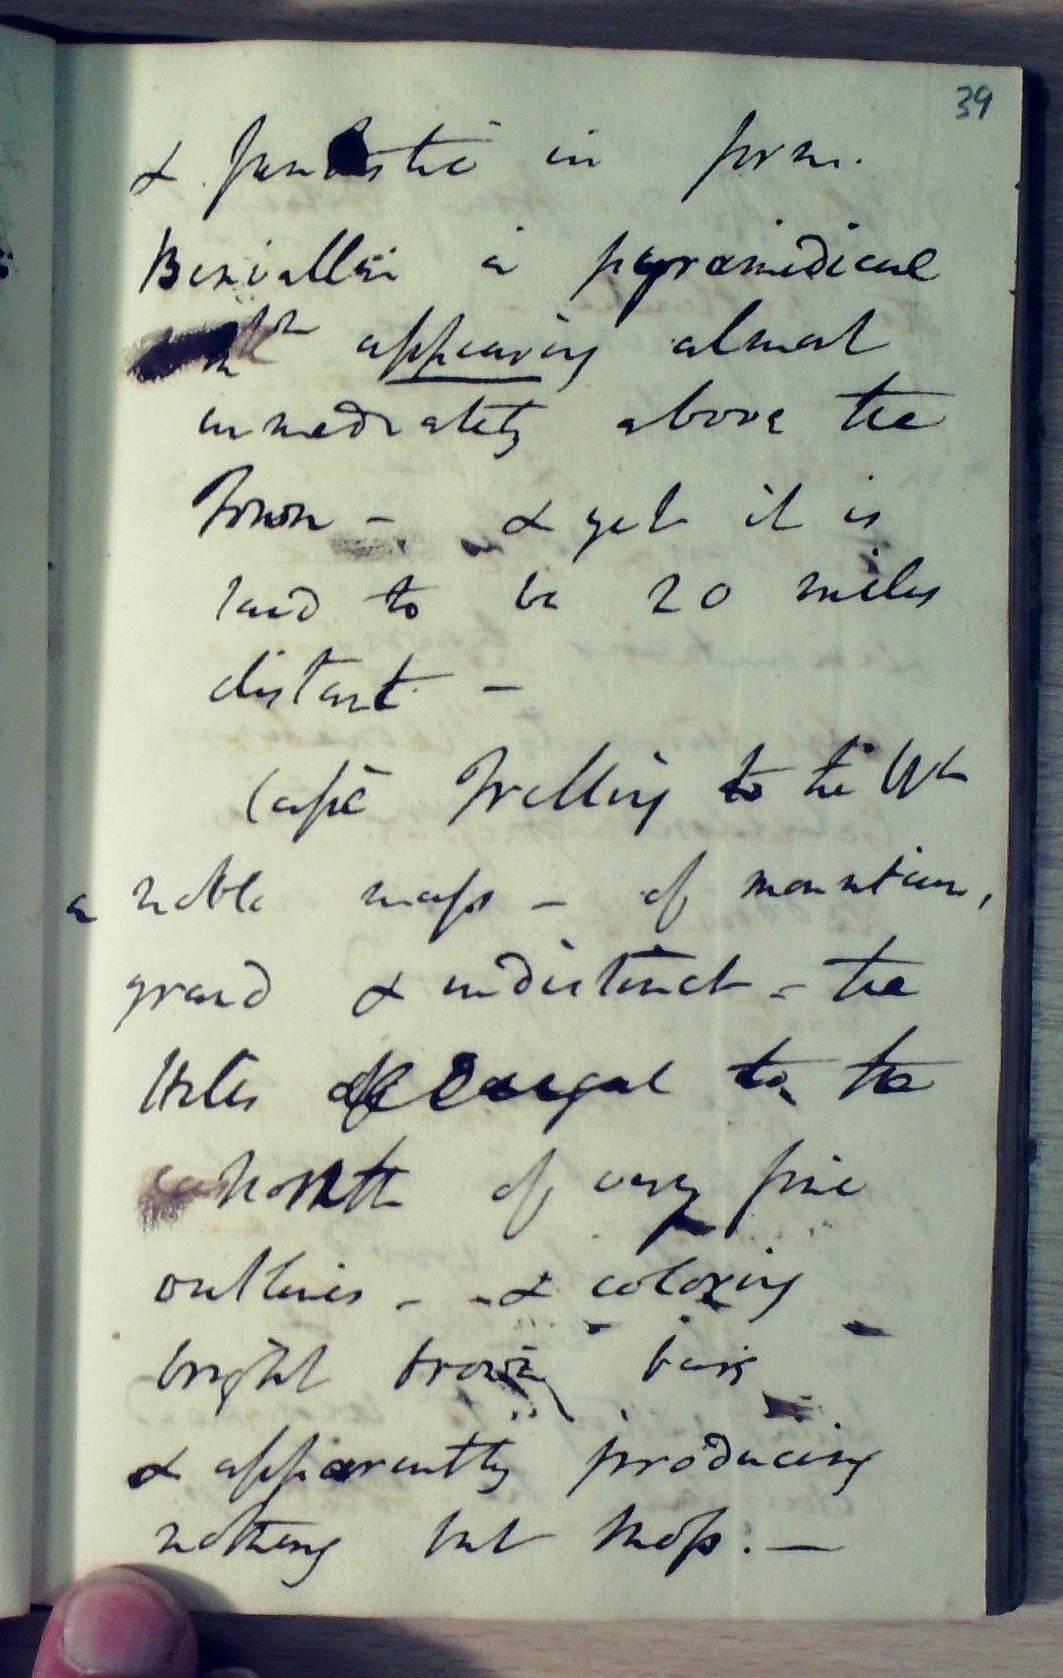 39
& fantastic in form.
a pyramidical
appearing almost
immediately above the
Town - & yet it is
said to be 20 miles
distant -
to the Wt
a noble mass - of mountain,
grand & indistinct - the
to the
North of very fine
outlines - & coloring
bright brown being
& apparently producing
nothing but Moss. -